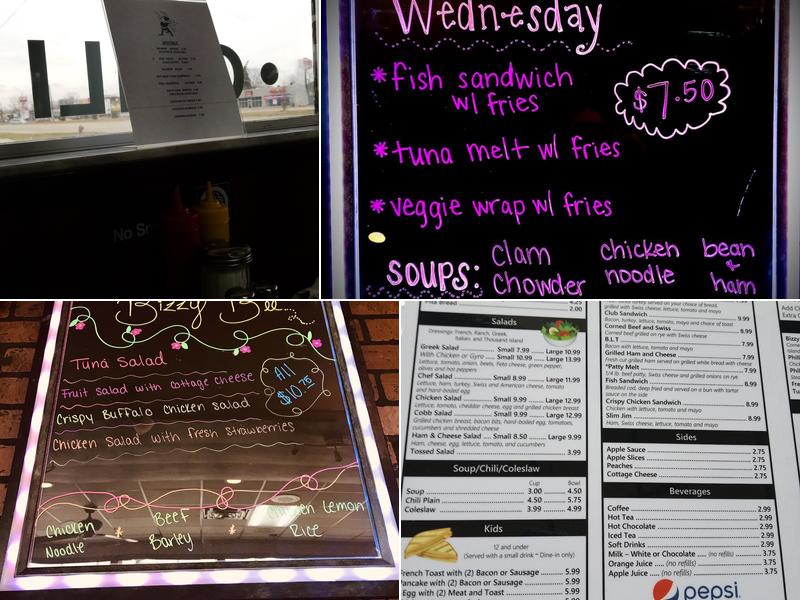 SPECIALS
LI
No
Wednesday
*fish sandwich
w/ fries
$7.50
*tuna melt w/ fries
*veggie wrap w/ fries
SOUPS:
clam
chowder
chicken
noodle
bean
&
ham
Bizzy Bee
Tuna Salad
Fruit salad with cottage cheese
Crispy Buffalo Chicken salad
Chicken Salad with fresh strawberries
All
$10.75
Chicken
Noodle
*
Beef
Barley
*
Chicken Lemon
Rice
Pita Bread 4.25
2.00
Salads
Dressings: French, Ranch, Greek,
Italian, and Thousand Island
Greek Salad Small 7.99 Large 10.99
With Chicken or Gyro Small 10.99 Large 13.99
Lettuce, tomato, onions, beets, Feta cheese, green pepper,
olives and hot peppers
Chef Salad Small 8.99 Large 11.99
Lettuce, ham, turkey, Swiss and American cheese, tomato
and hard-boiled egg
Chicken Salad Small 9.99 Large 12.99
Lettuce, tomato, cheddar cheese, egg and grilled chicken breast
Cobb Salad Small 9.99 Large 12.99
Grilled chicken breast, bacon bits, hard-boiled egg, tomatoes,
cucumbers and shredded cheese
Ham & Cheese Salad Small 8.50 Large 9.99
Ham, cheese, egg, lettuce, tomato, and cucumbers
Tossed Salad 3.99
Soup/Chili/Coleslaw
Cup Bowl
Soup 3.00 4.50
Chili Plain 4.50 5.75
Coleslaw 3.99 4.99
Kids
12 and under
(Served with a small drink ~ Dine-in only)
French Toast with (2) Bacon or Sausage 5.99
Pancake with (2) Bacon or Sausage 5.99
Egg with (2) Meat and Toast 5.99
grilled with swiss cheese, lettuce, tomato and mayo
Club Sandwich 9.99
Bacon, turkey, lettuce, tomato, mayo and choice of toast
Corned Beef and Swiss 8.99
Corned beef grilled on rye with Swiss cheese
B.L.T 7.99
Bacon with lettuce, tomato and mayo
Grilled Ham and Cheese 7.99
Fresh cut grilled ham served on grilled white bread with cheese
*Patty Melt 7.99
1/4 lb. beef patty, Swiss cheese and grilled onions on rye
Fish Sandwich 8.99
Breaded cod, deep fried and served on a bun with tartar
sauce on the side
Crispy Chicken Sandwich 8.99
Chicken with lettuce, tomato and mayo
Slim Jim 8.99
Ham, Swiss cheese, lettuce, tomato and mayo
Sides
Apple Sauce 2.75
Apple Slices 2.75
Peaches 2.75
Cottage Cheese 2.75
Beverages
Coffee 2.99
Hot Tea 2.99
Hot Chocolate 2.99
Iced Tea 2.99
Soft Drinks 2.99
Milk – White or Chocolate (no refills) 3.75
Orange Juice (no refills) 3.75
Apple Juice (no refills) 3.75
pepsi
Add C
Extra
Bizzy